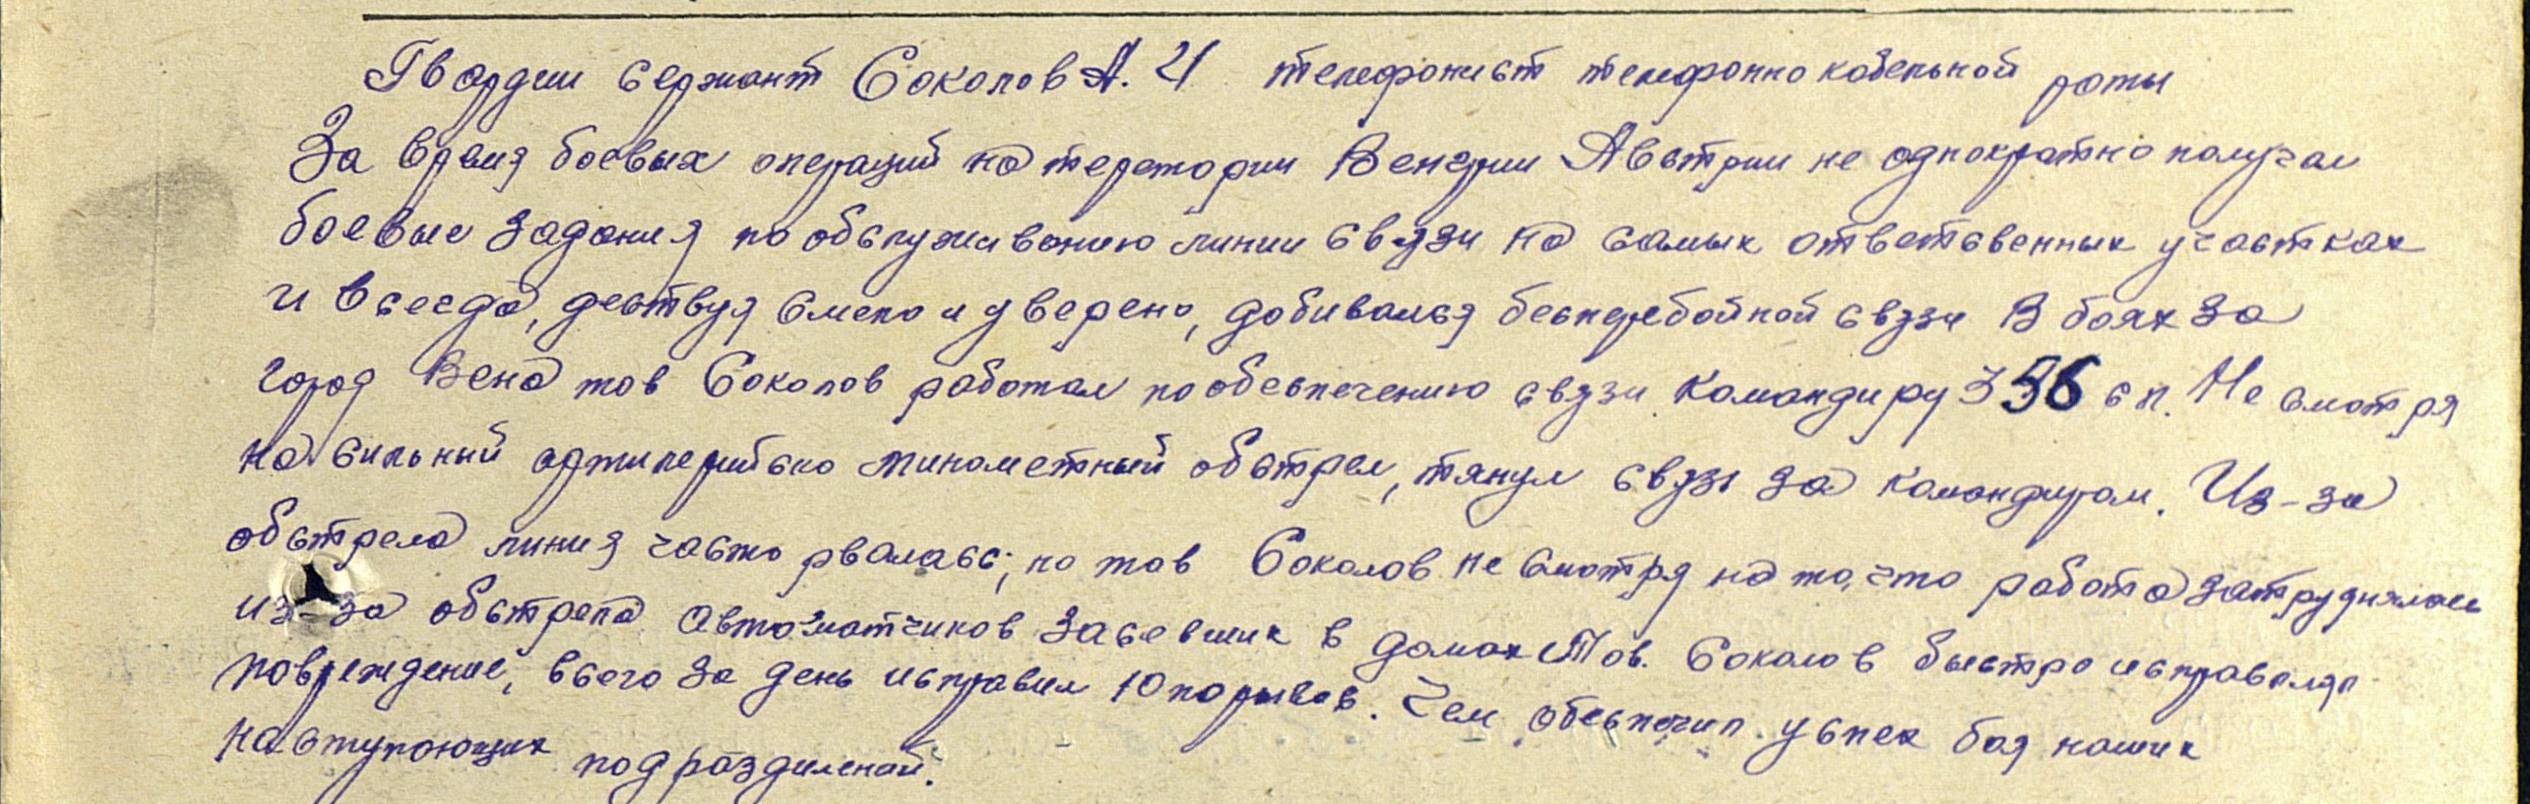 Гвардии сержант Соколов А. И телефонист телефонно кабельной роты
За время боевых операций на теретории Венгрии Австрии не однократно получал
боевые задания по обслуживанию линии связи на самых ответсвенных участках
и всегда, дествуя смело и уверено, добивался бесперебойной связи В боях за
город Вена тов Соколов работал по обеспечению связи командиру 356 сп. Не смотря
на сильный артилерийско минометный обстрел, тянул связь за командиром. Из-за
обстрела линия часто рвалась; но тов Соколов не смотря на то, что работа затруднялась
из-за обстрела автоматчиков засевших в домах Тов. Соколов быстро исправлял
повреждение, всего за день исправил 10 порывов. Чем обеспечил успех боя наших
наступающих подразделений.